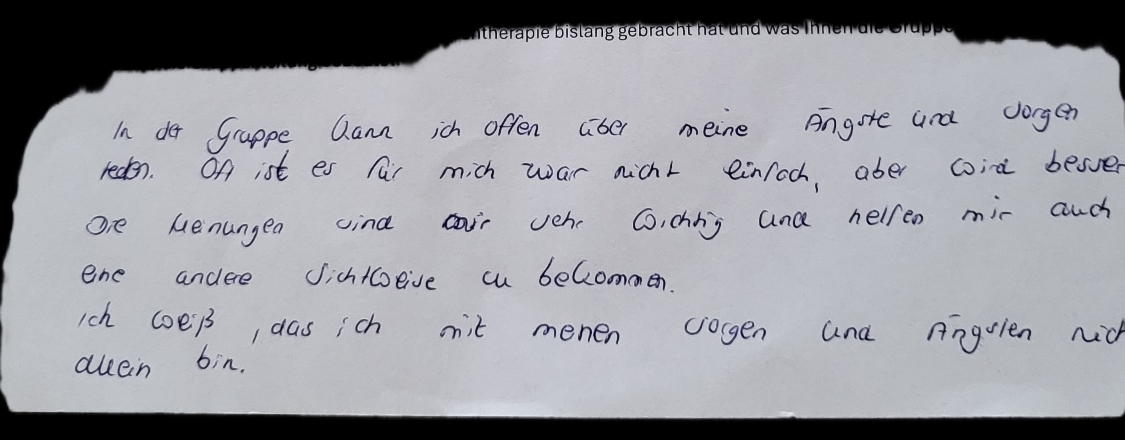 ntherapie bislang gebracht hat und was Ihnen die Gruppe
In der Gruppe kann ich offen über meine Ängste und Sorgen
reden. Oft ist es für mich zwar nicht einfach, aber wird besser
Die Meinungen sind mir sehr wichtig und helfen mir auch
eine andere Sichtweise zu bekommen.
Ich weiß, das ich mit meinen Sorgen und Ängsten nich
allein bin.